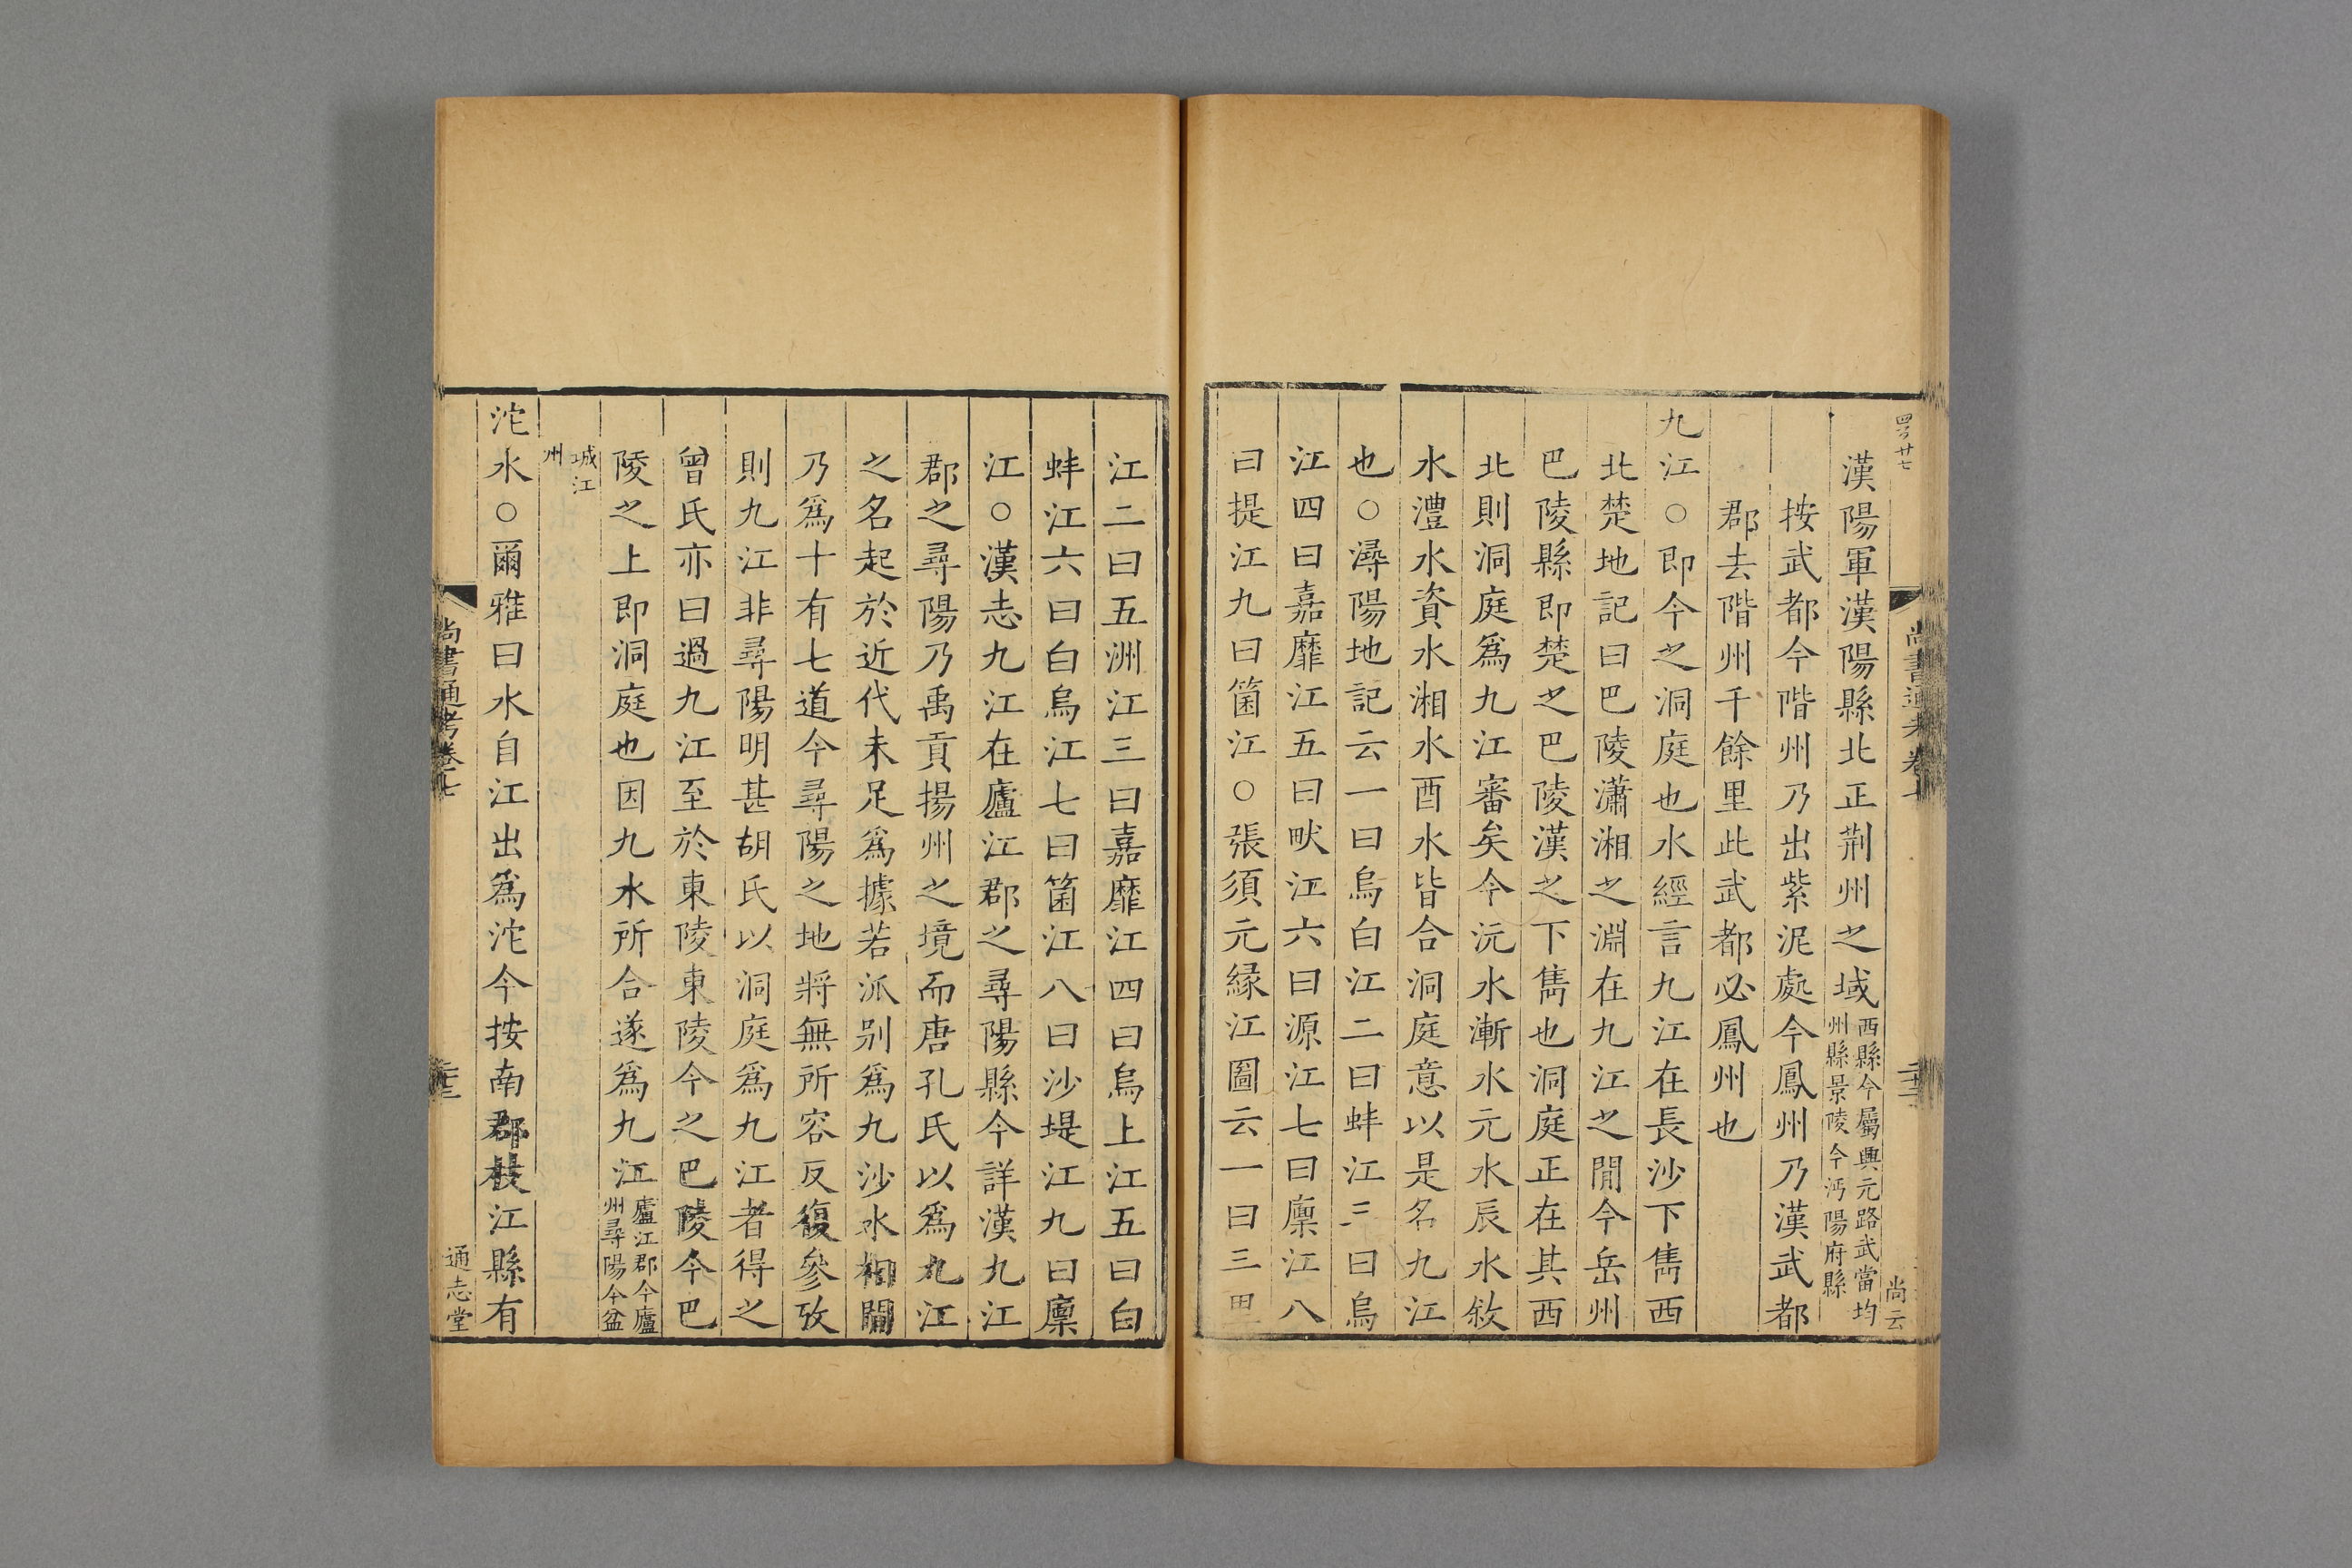 四百廿七
尚書通考卷七
二十二
尚云
漢陽軍漢陽縣北正荆州之域西縣今屬興元路武當均
州縣景陵今沔陽府縣
按武都今階州乃出紫泥處今鳳州乃漢武都
郡去階州千餘里此武都必鳳州也
九江○即今之洞庭也水經言九江在長沙下雋西
北楚地記曰巴陵瀟湘之淵在九江之閒今岳州
巴陵縣即楚之巴陵漢之下雋也洞庭正在其西
北則洞庭爲九江審矣今沅水漸水元水辰水敘
水澧水資水湘水酉水皆合洞庭意以是名九江
也○潯陽地記云一曰烏白江二曰蚌江三曰烏
江四曰嘉靡江五曰畎江六曰源江七曰廩江八
曰提江九曰箘江○張須元緣江圖云一曰三里
江二曰五洲江三曰嘉靡江四曰烏土江五曰白
蚌江六曰白烏江七曰箘江八曰沙堤江九曰廩
江○漢志九江在廬江郡之尋陽縣今詳漢九江
郡之尋陽乃禹貢揚州之境而唐孔氏以爲九江
之名起於近代未足爲據若派别爲九沙水相閒
乃爲十有七道今尋陽之地將無所容反復參攷
則九江非尋陽明甚胡氏以洞庭爲九江者得之
曾氏亦曰過九江至於東陵東陵今之巴陵今巴
陵之上即洞庭也因九水所合遂爲九江廬江郡今廬
州尋陽今盆
城江
州
沱水○爾雅曰水自江出爲沱今按南郡枝江縣有
尚書通考卷七
二十三
通志堂